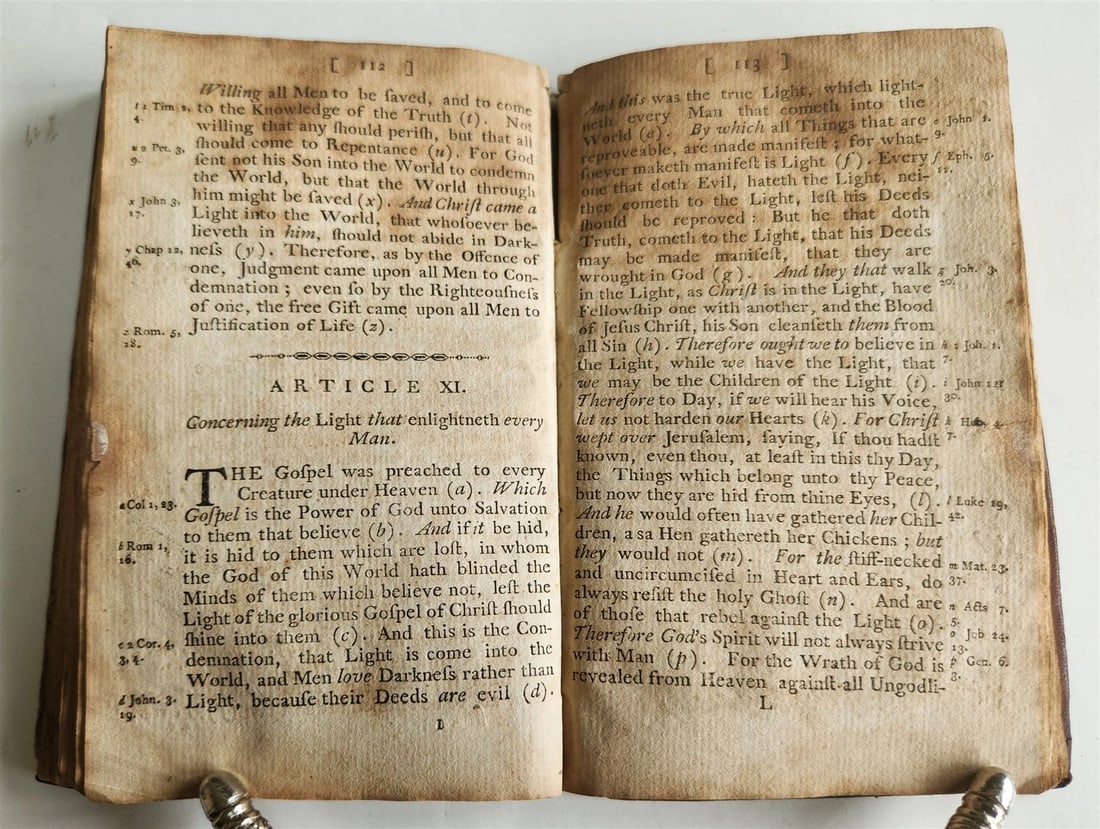 [ 112 ]
Willing all Men to be ſaved, and to come
to the Knowledge of the Truth (t). Not
willing that any ſhould periſh, but that all
ſhould come to Repentance (u). For God
ſent not his Son into the World to condemn
the World, but that the World through
him might be ſaved (x). And Chriſt came a
Light into the World, that whoſoever be-
lieveth in him, ſhould not abide in Dark-
neſs (y). Therefore, as by the Offence of
one, Judgment came upon all Men to Con-
demnation; even ſo by the Righteouſneſs
of one, the free Gift came upon all Men to
Juſtification of Life (z).
t 1 Tim 2,
4.
u 2 Pet. 3,
9.
x John 3,
17.
y Chap 12,
46.
z Rom. 5,
18.
ARTICLE XI.
Concerning the Light that enlightneth every
Man.
THE Goſpel was preached to every
Creature under Heaven (a). Which
Goſpel is the Power of God unto Salvation
to them that believe (b). And if it be hid,
it is hid to them which are loſt, in whom
the God of this World hath blinded the
Minds of them which believe not, leſt the
Light of the glorious Goſpel of Chriſt ſhould
ſhine into them (c). And this is the Con-
demnation, that Light is come into the
World, and Men love Darkneſs rather than
Light, becauſe their Deeds are evil (d).
a Col 1, 23.
b Rom 1,
16.
c 2 Cor. 4,
3, 4.
d John. 3.
19.
[ 113 ]
And this was the true Light, which light-
neth every Man that cometh into the
World (e). By which all Things that are
reproveable, are made manifeſt; for what-
ſoever maketh manifeſt is Light (f). Every
one that doth Evil, hateth the Light, nei-
ther cometh to the Light, leſt his Deeds
ſhould be reproved: But he that doth
Truth, cometh to the Light, that his Deeds
may be made manifeſt, that they are
wrought in God (g). And they that walk
in the Light, as Chriſt is in the Light, have
Fellowſhip one with another, and the Blood
of Jeſus Chriſt, his Son cleanſeth them from
all Sin (h). Therefore ought we to believe in
the Light, while we have the Light, that
we may be the Children of the Light (i).
Therefore to Day, if we will hear his Voice,
let us not harden our Hearts (k). For Chriſt
wept over Jeruſalem, ſaying, If thou hadſt
known, even thou, at leaſt in this thy Day,
the Things which belong unto thy Peace,
but now they are hid from thine Eyes, (l).
And he would often have gathered her Chil-
dren, a sa Hen gathereth her Chickens; but
they would not (m). For the ſtiff-necked
and uncircumciſed in Heart and Ears, do
always reſiſt the holy Ghoſt (n). And are
of thoſe that rebel againſt the Light (o).
Therefore God's Spirit will not always ſtrive
with Man (p). For the Wrath of God is
revealed from Heaven againſt all Ungodli-
L
e John 1.
9.
f Eph. 5.
g Joh. 3.
20.
h 1 Joh. 1.
7.
i John 12.
30.
7.
l Luke 19,
42.
m Mat. 23.
37.
n Acts 7.
5.
o Job 24.
13.
p Gen. 6.
3.